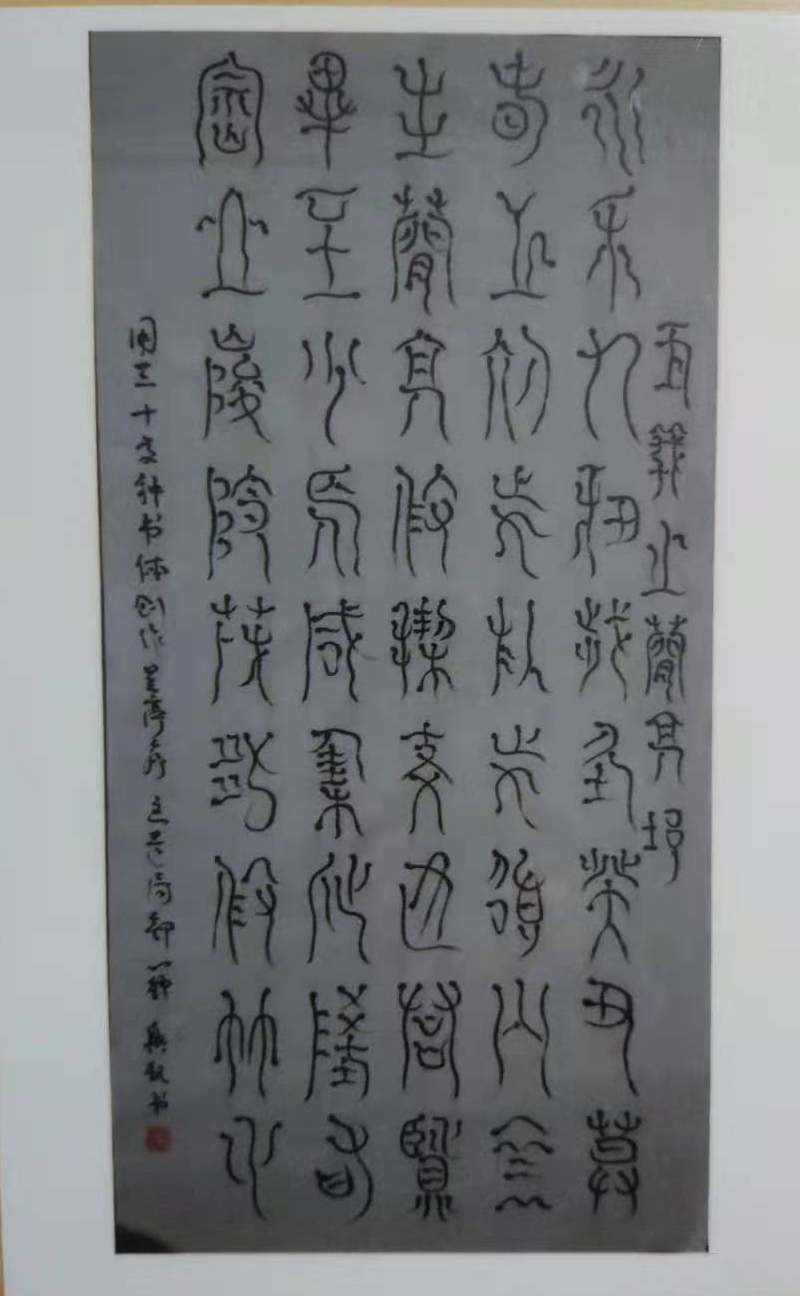 王羲之蘭亭序
永和九年歲在癸丑暮
春之初會于會稽山陰
之蘭亭修禊事也羣賢
畢至少長咸集此地有
崇山峻嶺茂林修竹
用三十多种书体创作兰亭序 这是局部一种 书